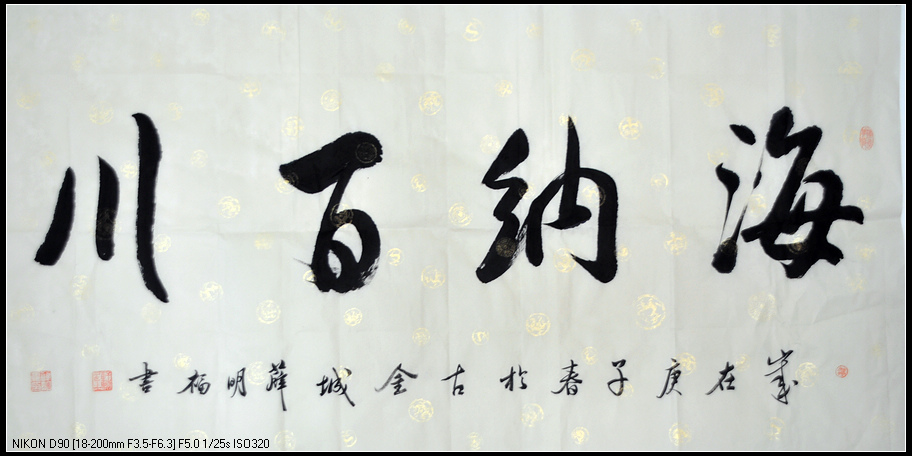 海纳百川
岁在庚子春於古金城薛明杨書
NIKON D90 [18-200mm F3.5-F6.3] F5.0 1/25s ISO320